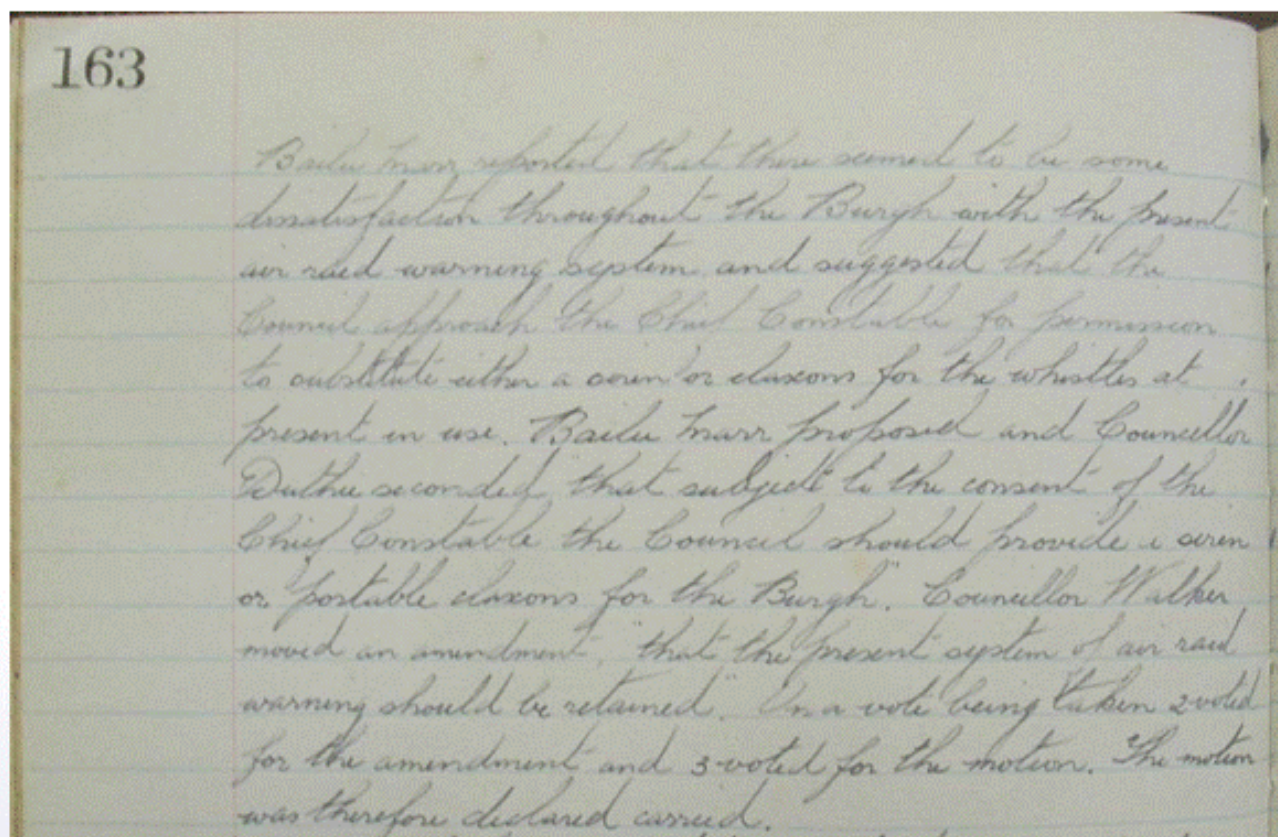 163
Bailie Marr reported that there seemed to be some
dissatisfaction throughout the Burgh with the present
air raid warning system and suggested that the
Council approach the Chief Constable for permission
to substitute either a siren or claxons for the whistles at
present in use. Bailie Marr proposed and Councillor
Duthie seconded, that subject to the consent of the
Chief Constable the Council should provide a siren
or "portable claxons for the Burgh". Councillor Walker
moved an amendment, "that the present system of air raid
warning should be retained". On a vote being taken 2 voted
for the amendment and 3 voted for the motion. The motion
was therefore declared carried.